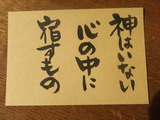 神はいない
心の中に
宿すもの